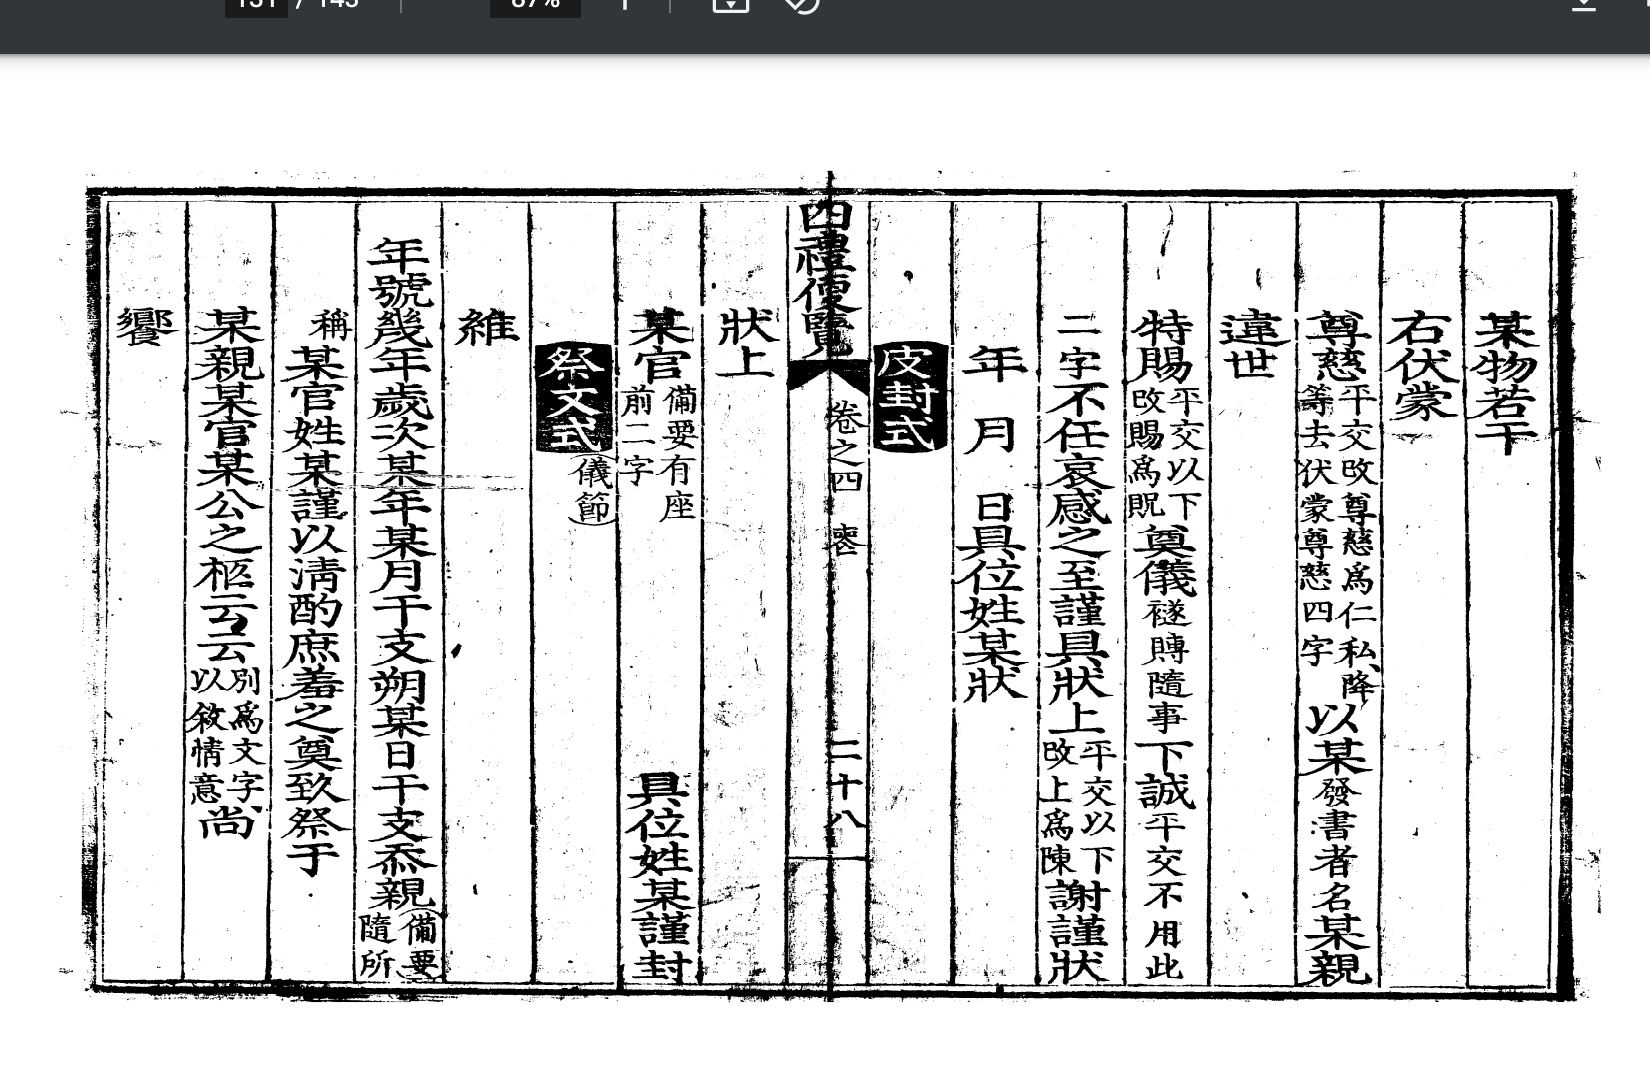 131 / 143
87%
某物若干
右伏蒙
尊慈平交改尊慈爲仁私降等去伏蒙尊慈四字以某發書者名某親
違世
特賜平交以下改賜爲貺奠儀襚賻隨事下誠平交不用此
二字不任哀感之至謹具狀上平交以下改上爲陳謝謹狀
年 月 日具位姓某狀
皮封式
四禮便覽 卷之四 喪 二十八
狀上
某官備要有座前二字 具位姓某謹封
祭文式儀節
維
年號幾年歲次某年某月干支朔某日干支忝親備要隨所
稱某官姓某謹以淸酌庶羞之奠致祭于
某親某官某公之柩云云別爲文字以敘情意尙
饗